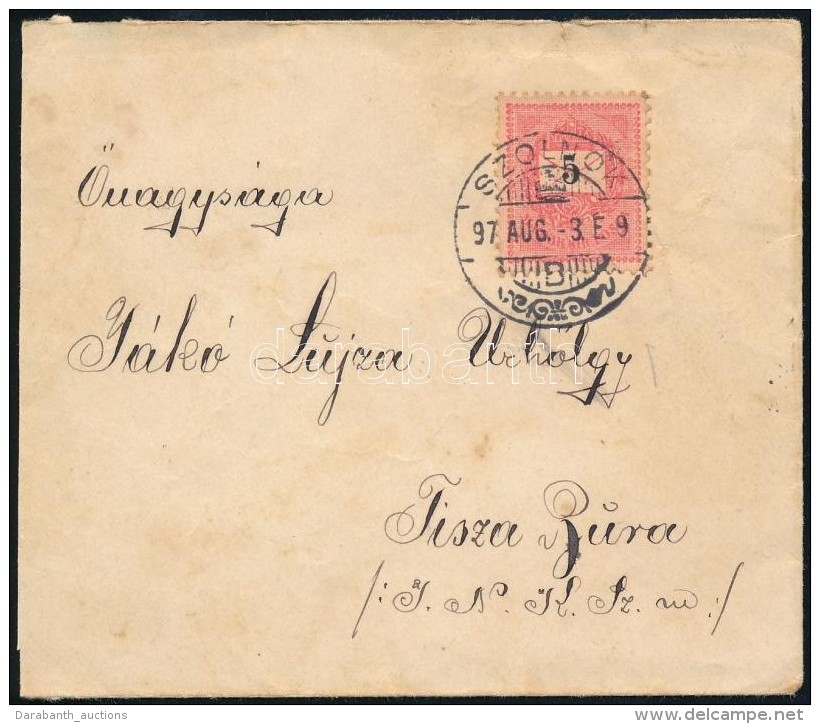 5
SZOLNOK
97 AUG. -3. E. 9
B
Önagysága
Jákó Lujza Urhölgy
darabanth
Tisza Bura
/: J. N. K. Sz. m :/
Darabanth_auctions
delcampe.net